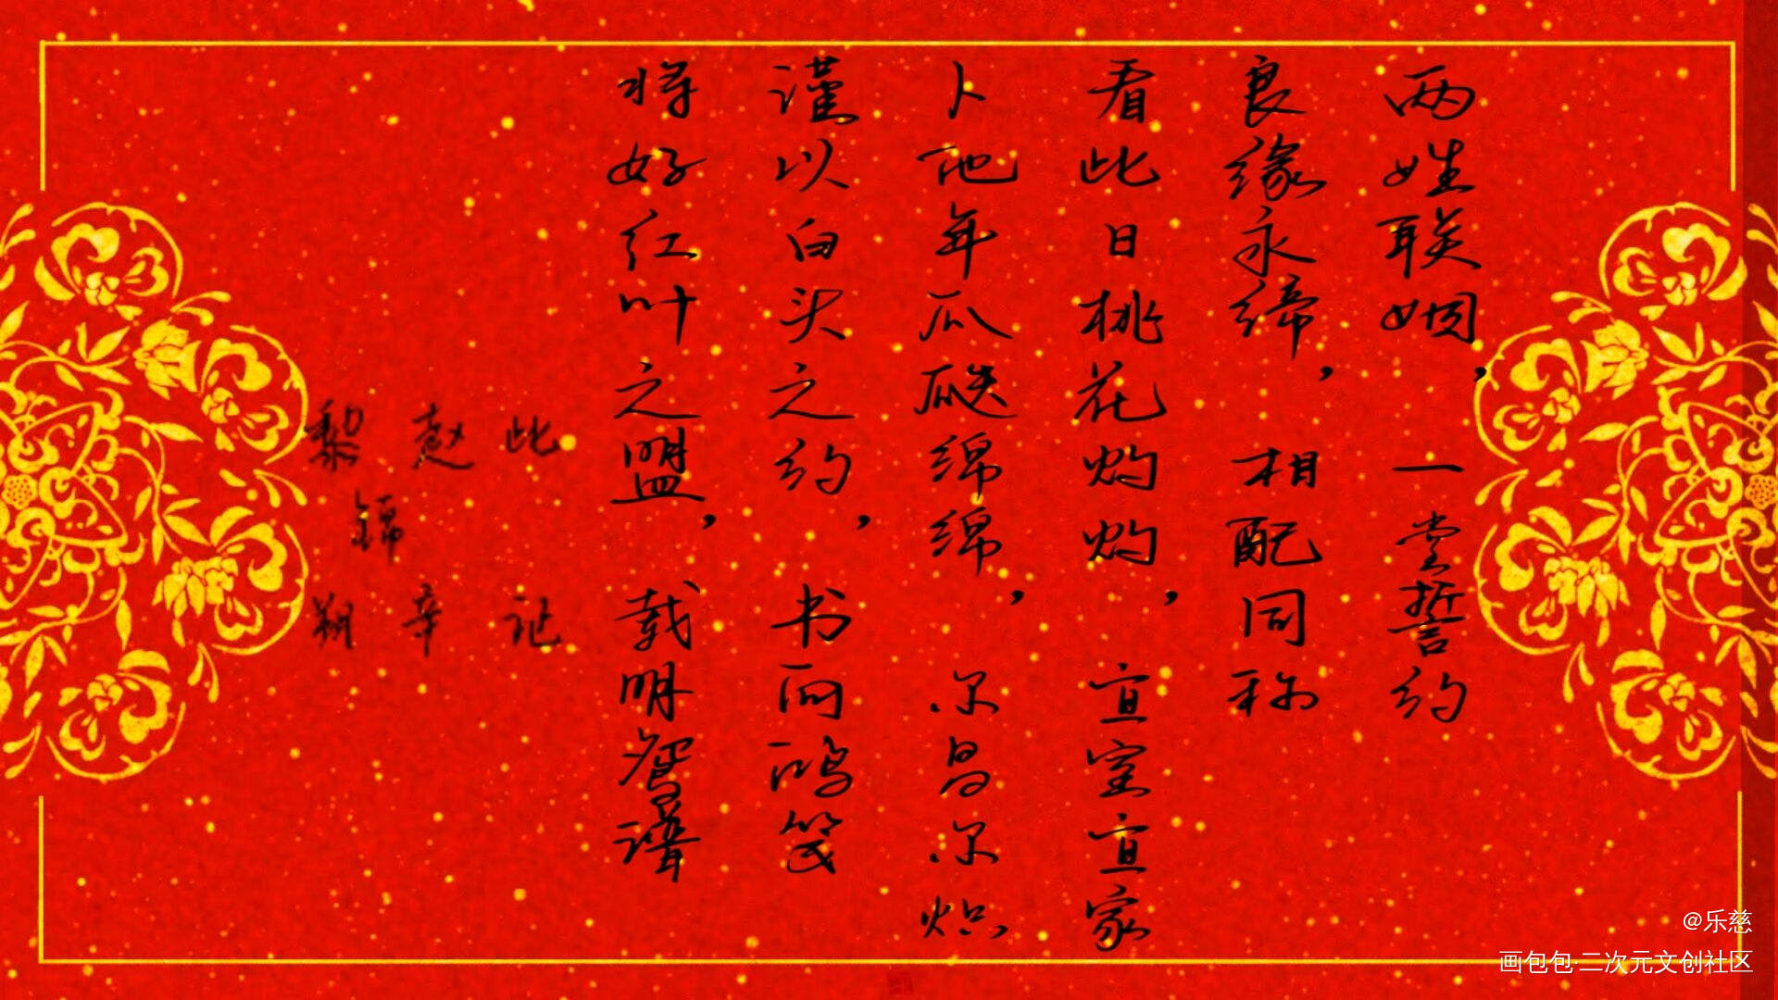 两姓联姻，一堂誓约
良缘永缔，相配同称
看此日桃花灼灼，宜室宜家
卜他年瓜瓞绵绵，尔昌尔炽
谨以白头之约，书向鸿笺
将好红叶之盟，载明鸳谱
此记
赵辛
黎锦朔
@乐慈
画包包·二次元文创社区